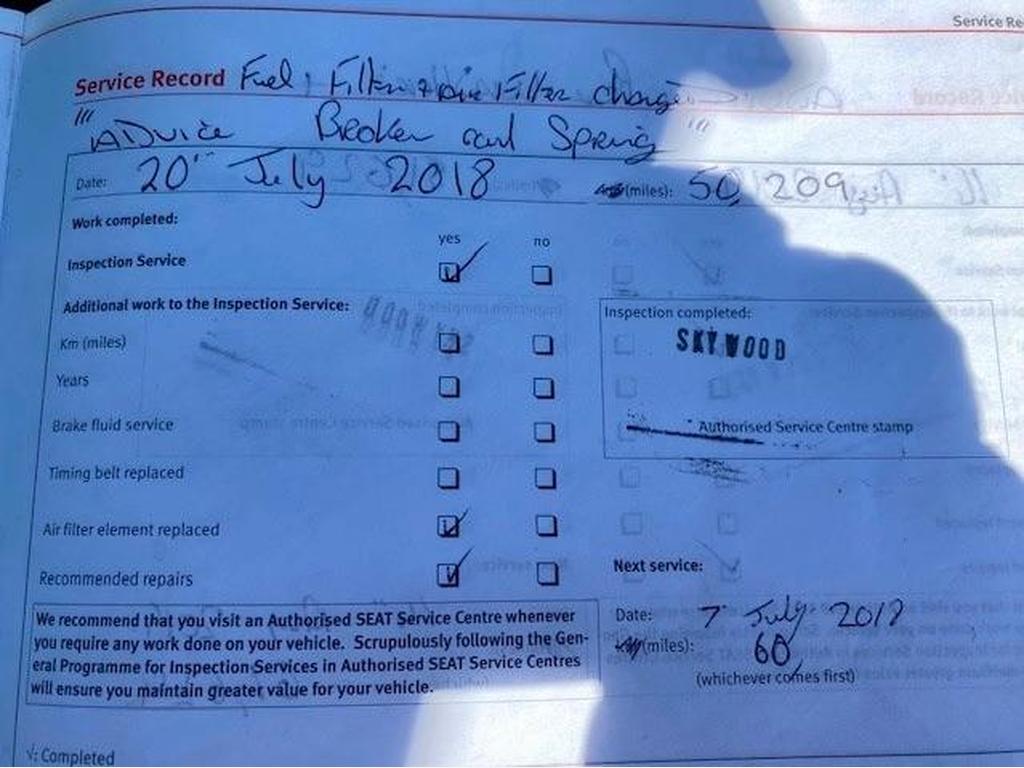 Service Re
Service Record Fuel, Filter + Filter change
"' ADVICE Broken Spring "'
Date: 20" July 2018 (miles): 50, 209
Work completed:
yes no
Inspection Service
Additional work to the Inspection Service:
Inspection completed:
Km (miles)
SKYWOOD
Years
Brake fluid service
Authorised Service Centre stamp
Timing belt replaced
Air filter element replaced
Recommended repairs
Next service:
We recommend that you visit an Authorised SEAT Service Centre whenever
you require any work done on your vehicle. Scrupulously following the Gen-
eral Programme for Inspection Services in Authorised SEAT Service Centres
will ensure you maintain greater value for your vehicle.
Date: 7 July
(miles): 60,
(whichever comes first)
√: Completed